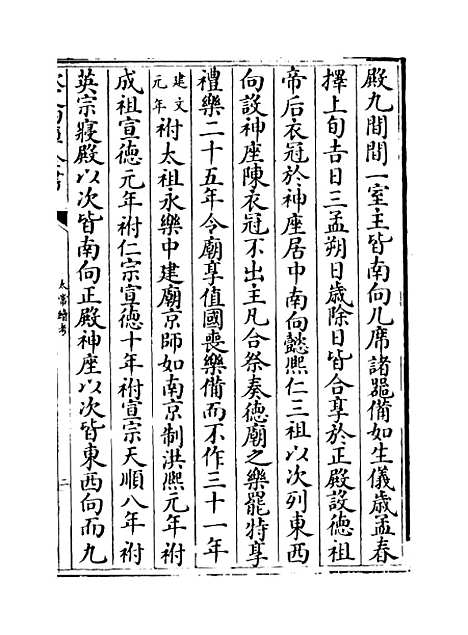 殿九間間一室主皆南向几席諸器備如生儀歲孟春
擇上旬吉日三孟朔日歲除日皆合享於正殿設德祖
帝后衣冠於神座居中南向懿熙仁三祖以次列東西
向設神座陳衣冠不出主凡合祭奏德廟之樂罷特享
禮樂二十五年令廟享值國喪樂備而不作三十一年
建文元年祔太祖永樂中建廟京師如南京制洪熙元年祔
成祖宣德元年祔仁宗宣德十年祔宣宗天順八年祔
英宗寢殿以次皆南向正殿神座以次皆東西向而九
太常續考
二